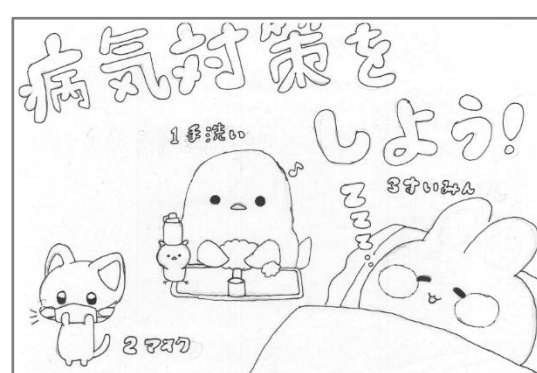 病気対策を
しよう!
1手洗い
3すいみん
zzz
2マスク